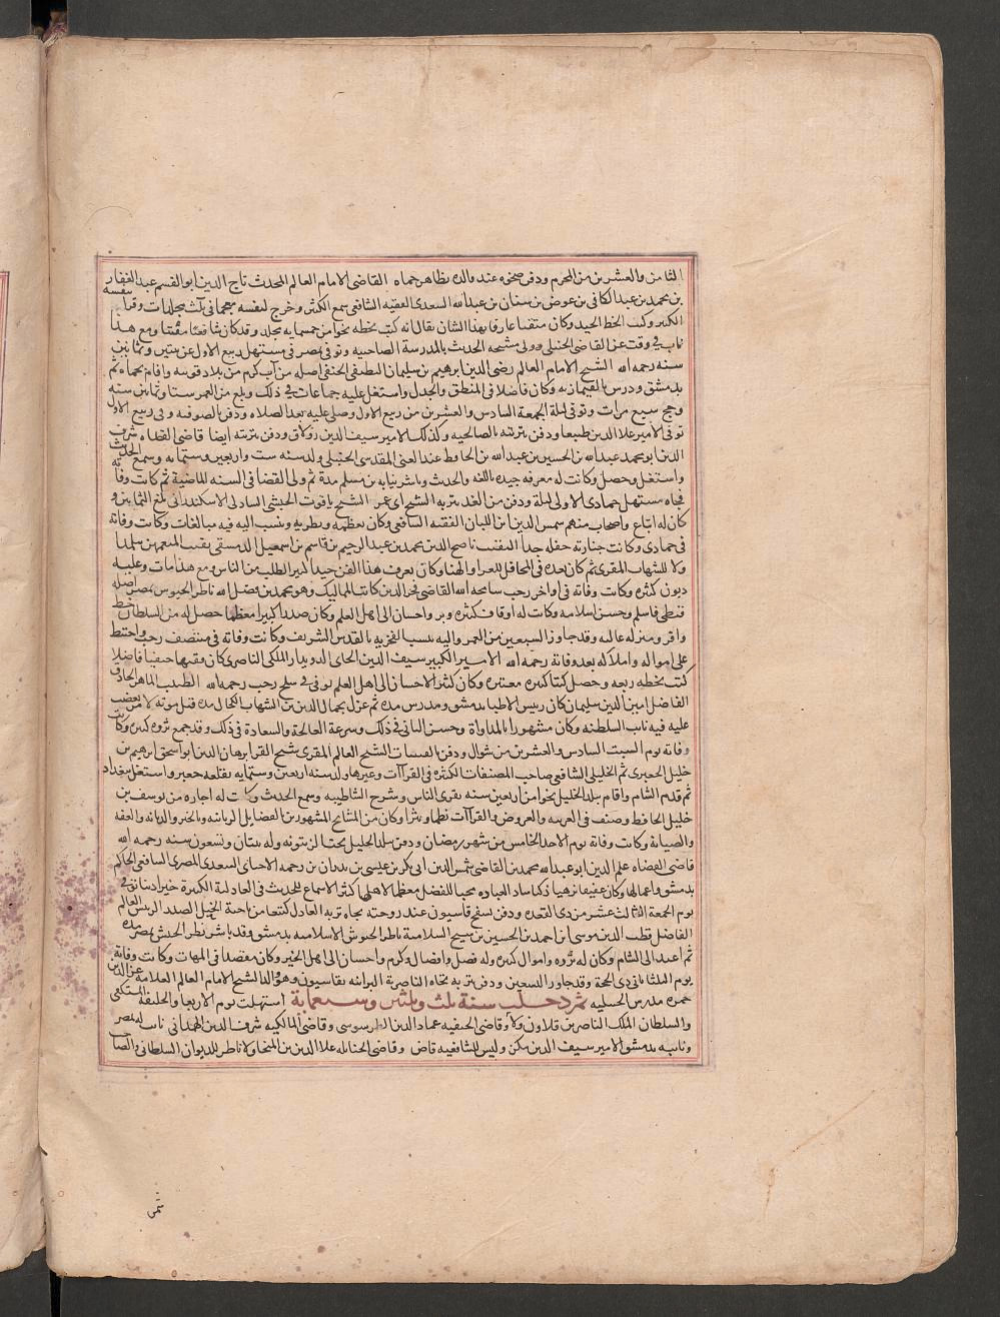 الثامن والعشرين من المحرم ودفن ضحوه عند والده بظاهر حماه القاضى الامام العالم المحدث تاج الدين ابو القسم عبد الغفار
بن محمد بن عبد الكافى بن عوض بن سنان بن عبد الله السعدى الفقيه الشافعى سمع الكثير وخرج لنفسه معجما فى ثلث مجلدات وقرا بنفسه
الكثير وكتب الخط الجيد وكان متقنا عارفا بهذا الشان يقال انه كتب بخطه نحوا من خمسمايه مجلد وقد كان شافعيا مفتيا ومع هذا
ناب فى وقت عن القاضى الحنبلى وولى مشيخه الحديث بالمدرسة الصاحبيه وتوفى بمصر فى مستهل ربيع الاول عن ثنتين وثمانين
سنه رحمه الله الشيخ الامام العالم رضى الدين ابرهيم بن سليمان المنطقى الحنفى اصله من آب كرم من بلاد قونيه واقام بحماه ثم
بدمشق ودرس بالقيمازيه وكان فاضلا فى المنطق والجدل واشتغل عليه جماعات فى ذلك وبلغ من العمر ستا وثمانين سنه
وحج سبع مرات وتوفى ليلة الجمعة السادس والعشرين من ربيع الاول وصلى عليه بعد الصلاه ودفن بالصوفيه وفى ربيع الاول
توفى الامير علا الدين طيبغا ودفن بتربته بالصالحيه وكذلك الامير سيف الدين زولاق ودفن بتربته ايضا قاضى القضاه شرف
الدين ابو محمد عبد الله بن الحسين بن عبد الله بن الحافظ عبد الغنى المقدسى الحنبلى ولد سنه ست واربعين وستمايه وسمع الحديث
واشتغل وحصل وكانت له معرفه جيده باللغه والحديث وباشر نيابه بن مسلم مدة ثم ولى القضا فى السنه الماضية ثم كانت وفاته
فجاه مستهل جمادى الاولى ليلة ودفن من الغد بتربه الشيخ ابى عمر الشيخ ياقوت الحبشى الشادلى الاسكندرانى بلغ الثمانين و
كان له اتباع واصحاب منهم شمس الدين ابن اللبان الفقيه الشافعى وكان يعظمه ويطريه وينسب اليه فيه مبالغات وكانت وفاته
فى جمادى وكانت جنازته حفله جدا النقيب ناصح الدين محمد بن عبد الرحيم بن قاسم بن اسمعيل الدمشقى نقيب المتعممين تلمذ
ولا للشهاب المقرى ثم كان بعده فى المحافل للعزا والهنا وكان يعرف هذا الفن جيدا كثير الطلب من الناس ومع هذا مات وعليه
ديون كثيره وكانت وفاته فى اواخر رجب سامحه الله القاضى فخر الدين كاتب المماليك وهو محمد بن فضل الله ناظر الجيوش بمصر اصله
قبطى فاسلم وحسن اسلامه وكانت له اوقاف كثيره وبر واحسان الى اهل العلم وكان صدرا كبيرا معظما حصل له من السلطان حظ
وافر ومنزله عاليه وقد جاوز السبعين من العمر واليه ينسب الفخريه بالقدس الشريف وكانت وفاته فى منتصف رجب واحتيط
على امواله واملاكه بعد وفاته رحمه الله الامير الكبير سيف الدين الجاى الدويدار الملكى الناصرى كان فقيها حنفيا فاضلا
كتب بخطه ربعه وحصل كتبا كثيره معتبره وكان كثير الاحسان الى اهل العلم توفى فى سلخ رجب رحمه الله الطبيب الماهر الحاذق
الفاضل امين الدين سليمان كان رييس الاطبا بدمشق ومدرس مده ثم عزل بجمال الدين بن الشهاب الكحال مده قبل موته لامر تعصب
عليه فيه نايب السلطنه وكان مشهورا بالمداواة وحسن التانى فى ذلك وسرعة المعالجة والسعادة فى ذلك وقد جمع ثروه كثيره وكانت
وفاته يوم السبت السادس والعشرين من شوال ودفن بالقبيبات الشيخ العالم المقرى شيخ القرا برهان الدين ابو اسحق ابرهيم بن
خليل الجعبرى ثم الخليلى الشافعى صاحب المصنفات الكثيره فى القراآت وغيرها ولد سنه اربعين وستمايه بقلعه جعبر واشتغل ببغداد
ثم قدم الشام واقام ببلد الخليل نحوا من اربعين سنه يقرى الناس وشرح الشاطبيه وسمع الحديث وكانت له اجازه من يوسف بن
خليل الحافظ وصنف فى العربيه والعروض والقراآت نظما ونثرا وكان من المشايخ المشهورين بالفضايل والرياسه والخير والديانه والعفه
والصيانة وكانت وفاته يوم الاحد الخامس من شهر رمضان ودفن ببلد الخليل تحت الزيتونه وله ثنتان وتسعون سنه رحمه الله
قاضى القضاه علم الدين ابو عبد الله محمد بن القاضى شمس الدين ابى بكر بن عيسى بن بدران بن رحمه الاخناى السعدى المصرى الشافعى الحاكم
بدمشق واعمالها كان عفيفا نزها ذكيا ساد العباره محبا للفضل معظما لاهله كثير الاسماع للحديث فى العادلية الكبيرة خيرا دينا توفى
يوم الجمعة الثالث عشر من ذى القعده ودفن بسفح قاسيون عند زوجته تجاه تربه العادل كتبغا من ناحية الجبل الصدر الرييس العالم
الفاضل قطب الدين موسى بن احمد بن الحسين بن شيخ السلامية ناظر الجيوش الاسلاميه بدمشق وقد باشر نظر الجيش بمصر مده
ثم اعيد الى الشام وكان له ثروه واموال كثيره وله فضل وافضال وكرم واحسان الى اهل الخير وكان مقصدا فى المهمات وكانت وفاته
يوم الثلثا ثانى ذى الحجة وقد جاوز السبعين ودفن بتربته تجاه الناصرية البرانيه بقاسيون وهو والد الشيخ الامام العالم العلامة عز الدين
حمزه مدرس الحنبليه ثم دخلت سنة ثلث وثلثين وسبعماية استهلت يوم الاربعا والخليفة المستكفى
والسلطان الملك الناصر بن قلاون وكان قاضى الحنفيه عماد الدين الطرسوسى وقاضى المالكيه شرف الدين الهمدانى نايبه بمصر
ونايبه بدمشق الامير سيف الدين تنكز وليس للشافعيه قاض وقاضى الحنابله علا الدين بن المنجا ولا ناظر للديوان السلطانى والصاحب